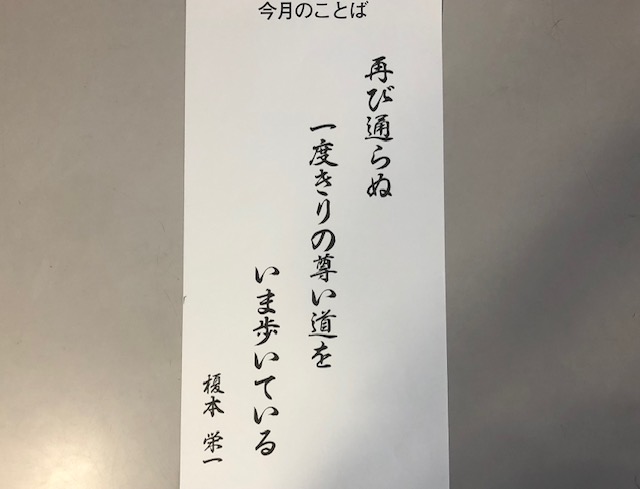 今月のことば
再び通らぬ
一度きりの尊い道を
いま歩いている
榎本 栄一